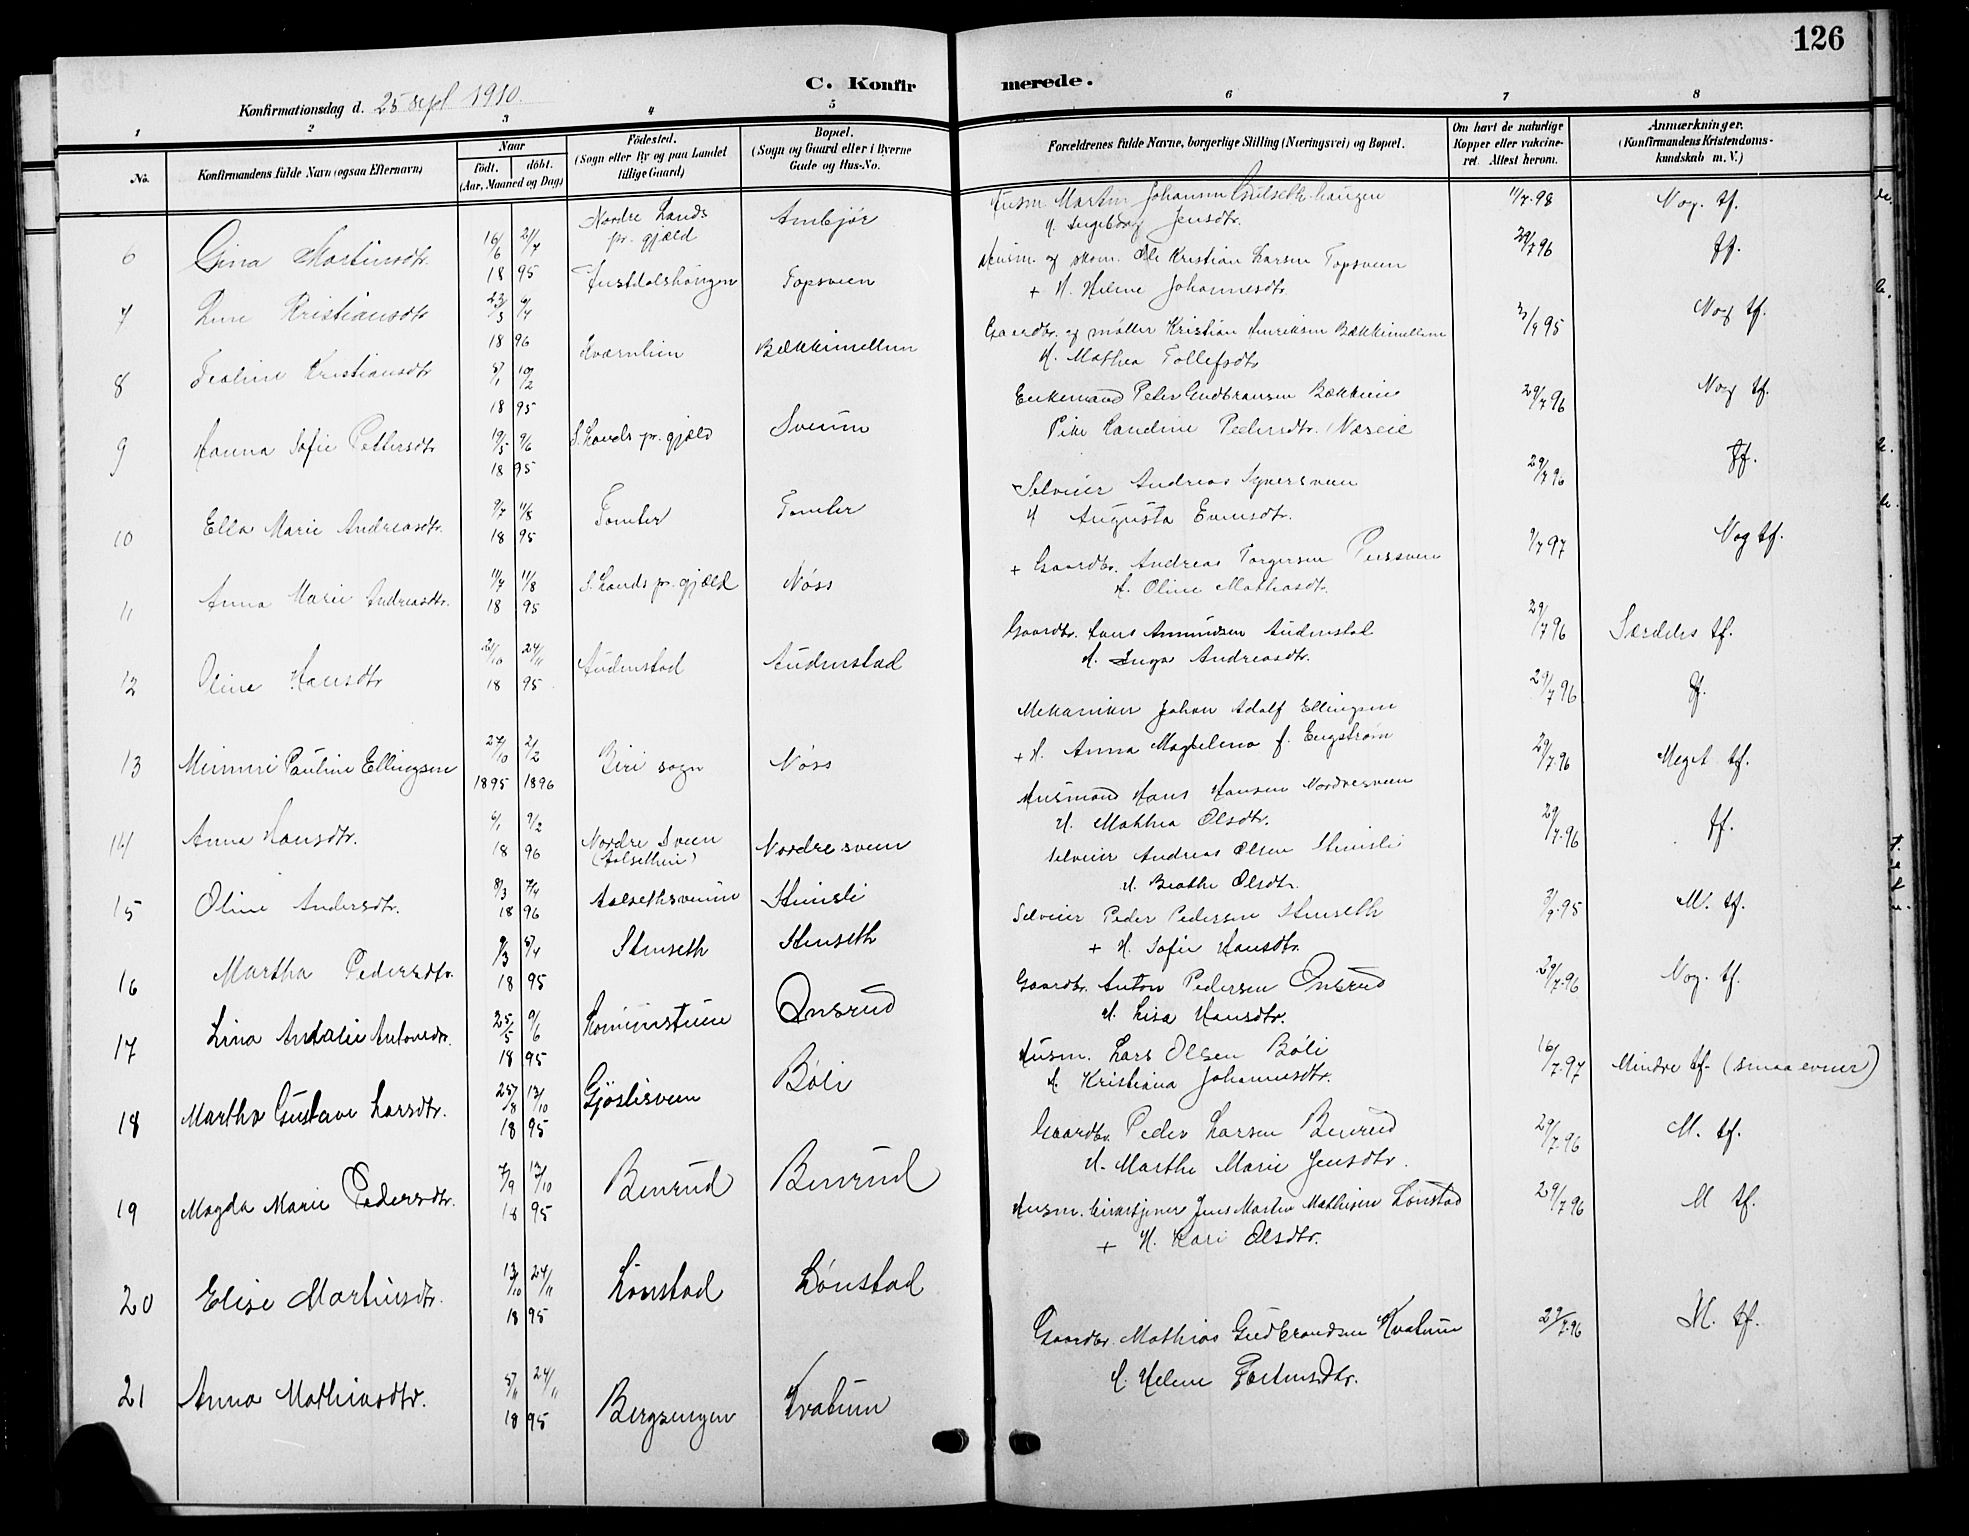 126
C. Konfirmerede.
Konfirmationsdag d. 25 sept 1910.
1 2 3 4 5 6 7 8
No.
Konfirmandens fulde Navn (ogsaa Efternavn)
Naar
født. døbt.
(Aar, Maaned og Dag)
Födested.
(Sogn eller By og paa Landet
tillige Gaard)
Bopæl.
(Sogn og Gaard eller i Byerne
Gade og Hus-No.
Forældrenes fulde Navne, borgerlige Stilling (Næringsvei) og Bopæl.
Om havt de naturlige
Kopper eller vakcine-
ret. Attest herom.
Anmærkninger.
(Konfirmandens Kristendoms-
kundskab m. V.)
6 Gina Martinsdtr. 16/6 21/7 18 95 Nordre Lands pr. gjæld Ambjør
Husm Martin Johansen
H. Ingeborg Jensdtr. 11/7-98 Nog. tf.
7 Lene Kristiansdtr 23/3 6/4 18 96 Topsveen
Husm. og skom. Ole Kristian Larsen Topsveen
+ H. Helene Johannesdtr. 29/7 96 tf.
8 Kristiansdtr 5/1 10/2 18 95 Kværnlien Bækkimellem
Gaardbr. og møller Kristian Henriksen Bækkimellem
H. Mathea Tollefsdtr 3/9 95 Nog tf.
9 Hanna Sofie Pettersdtr 19/5 9/6 18 95 S. Lands pr. gjæld Sveum
Enkemand Peder Gudbransen
Pike Karoline Pedersdtr. 29/7 96 Nog tf.
10 Ella Marie Andreasdtr. 9/7 11/8 18 95 Tomler Tomler
Selveier Andreas Syversveen
H Augusta Evensdtr. 29/7 96 tf.
11 Anna Marie Andreasdtr. 11/7 11/8 18 95 S. Lands pr. gjæld Nøss
+ Gaardbr. Andreas Torgersen Persveen
H. Oline Mathiasdtr. 9/7 97 Nog tf.
12 Oline Hansdtr 24/11 18 95 Audenstad Audenstad
Gaardbr. Hans Amundsen Audenstad
H. Inga Andreasdtr. 29/7 96 Særdeles tf.
13 Mimmi Pauline Ellingsen 27/10 2/2 1895 1896 Biri sogn Nøss
Mekaniker Johan Adolf Ellingsen
+ H. Anna Magdelena f. Engstrøm 29/7 96 tf.
14 Anna Hansdtr. 6/1 9/2 18 96 Nordre Sveen Nordresveen
Husmand Hans Hansen Nordresveen
H. Mathea Olsdtr. 29/7-96 Meget tf.
15 Oline Andersdtr. 8/3 7/4 18 96 Stensli
Selveier Andreas Olsen Stensli
H. Beathe Olsdtr. 29/7-96 tf.
16 Martha Pedersdtr. 9/3 5/4 18 95 Stenseth Stenseth
Selveier Peder Pedersen Stenseth
+ H. Sofie Hansdtr. 3/9-95 M. tf.
17 Lina Antonsdtr. 25/5 9/6 18 95 Onsrud
Gaardbr. Anton Pedersen Onsrud
H. Lisa Hansdtr. 29/7-96 Nog. tf.
18 Martha Gustava Larsdtr. 25/8 13/10 18 95 Gjøslisveen Bøli
Husm. Lars Olsen Bøli
H. Kristiana Johannesdtr. 16/7-97 Mindre tf. (smaa evner)
19 Magda Marie Pedersdtr. 7/9 13/10 18 95 Benrud Benrud
Gaardbr. Peder Larsen Benrud
H. Marthe Marie Jensdtr. 29/7-96 M. tf.
20 Elise Martinsdtr. 13/10 24/11 18 95 Lønstad Lønstad
Husm. kirketjener Jens Martin Mathisen Lønstad
+ H. Kari Olsdtr. 29/7 96 M tf.
21 Anna Mathiasdtr. 5/11 24/11 18 95 Bergsengen Kvatum
Gaardbr. Mathias Gudbrandsen Kvatum
H. Helene 29/7-96 M. tf.